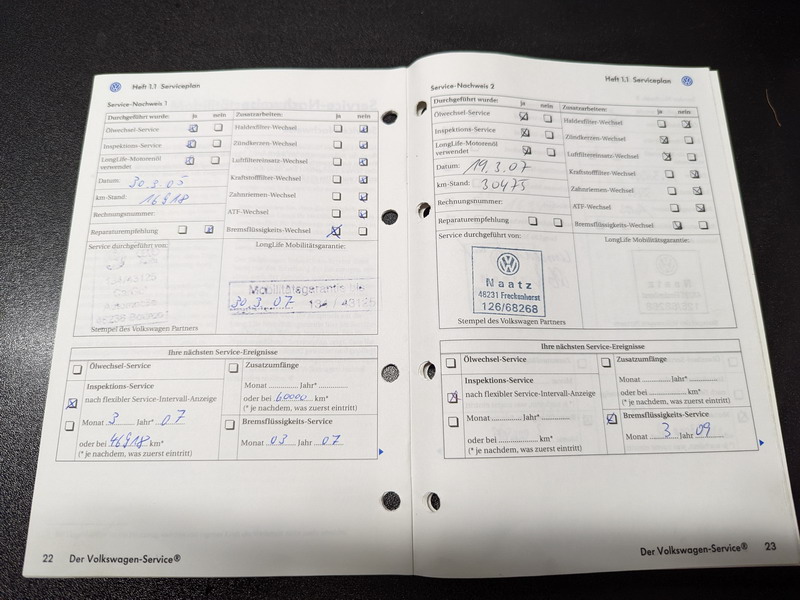 Heft 1.1 Serviceplan
Service-Nachweis 1
Durchgeführt wurde: ja nein Zusatzarbeiten: ja nein
Ölwechsel-Service Haldexfilter-Wechsel
Inspektions-Service Zündkerzen-Wechsel
LongLife-Motorenöl verwendet Luftfiltereinsatz-Wechsel
Datum: 30.3.05 Kraftstofffilter-Wechsel
km-Stand: 16918 Zahnriemen-Wechsel
Rechnungsnummer: ATF-Wechsel
Reparaturempfehlung Bremsflüssigkeits-Wechsel
Service durchgeführt von: LongLife Mobilitätsgarantie:
Mobilitätsgarantie bis
30.3.07
Stempel des Volkswagen Partners
Ihre nächsten Service-Ereignisse
Ölwechsel-Service Zusatzumfänge
Inspektions-Service Monat Jahr*
nach flexibler Service-Intervall-Anzeige oder bei 60000 km*
(* je nachdem, was zuerst eintritt)
Monat 3 Jahr* 07 Bremsflüssigkeits-Service
oder bei 46918 km* Monat 03 Jahr 07
(* je nachdem, was zuerst eintritt)
22 Der Volkswagen-Service®
Heft 1.1 Serviceplan
Service-Nachweis 2
Durchgeführt wurde: ja nein Zusatzarbeiten: ja nein
Ölwechsel-Service Haldexfilter-Wechsel
Inspektions-Service Zündkerzen-Wechsel
LongLife-Motorenöl verwendet Luftfiltereinsatz-Wechsel
Datum: 19.3.07 Kraftstofffilter-Wechsel
km-Stand: 30475 Zahnriemen-Wechsel
Rechnungsnummer: ATF-Wechsel
Reparaturempfehlung Bremsflüssigkeits-Wechsel
Service durchgeführt von: LongLife Mobilitätsgarantie:
Naatz
48231 Freckenhorst
126/68268
Stempel des Volkswagen Partners
Ihre nächsten Service-Ereignisse
Ölwechsel-Service Zusatzumfänge
Inspektions-Service Monat Jahr*
nach flexibler Service-Intervall-Anzeige oder bei km*
(* je nachdem, was zuerst eintritt)
Monat Jahr* Bremsflüssigkeits-Service
oder bei km* Monat 3 Jahr 09
(* je nachdem, was zuerst eintritt)
Der Volkswagen-Service® 23